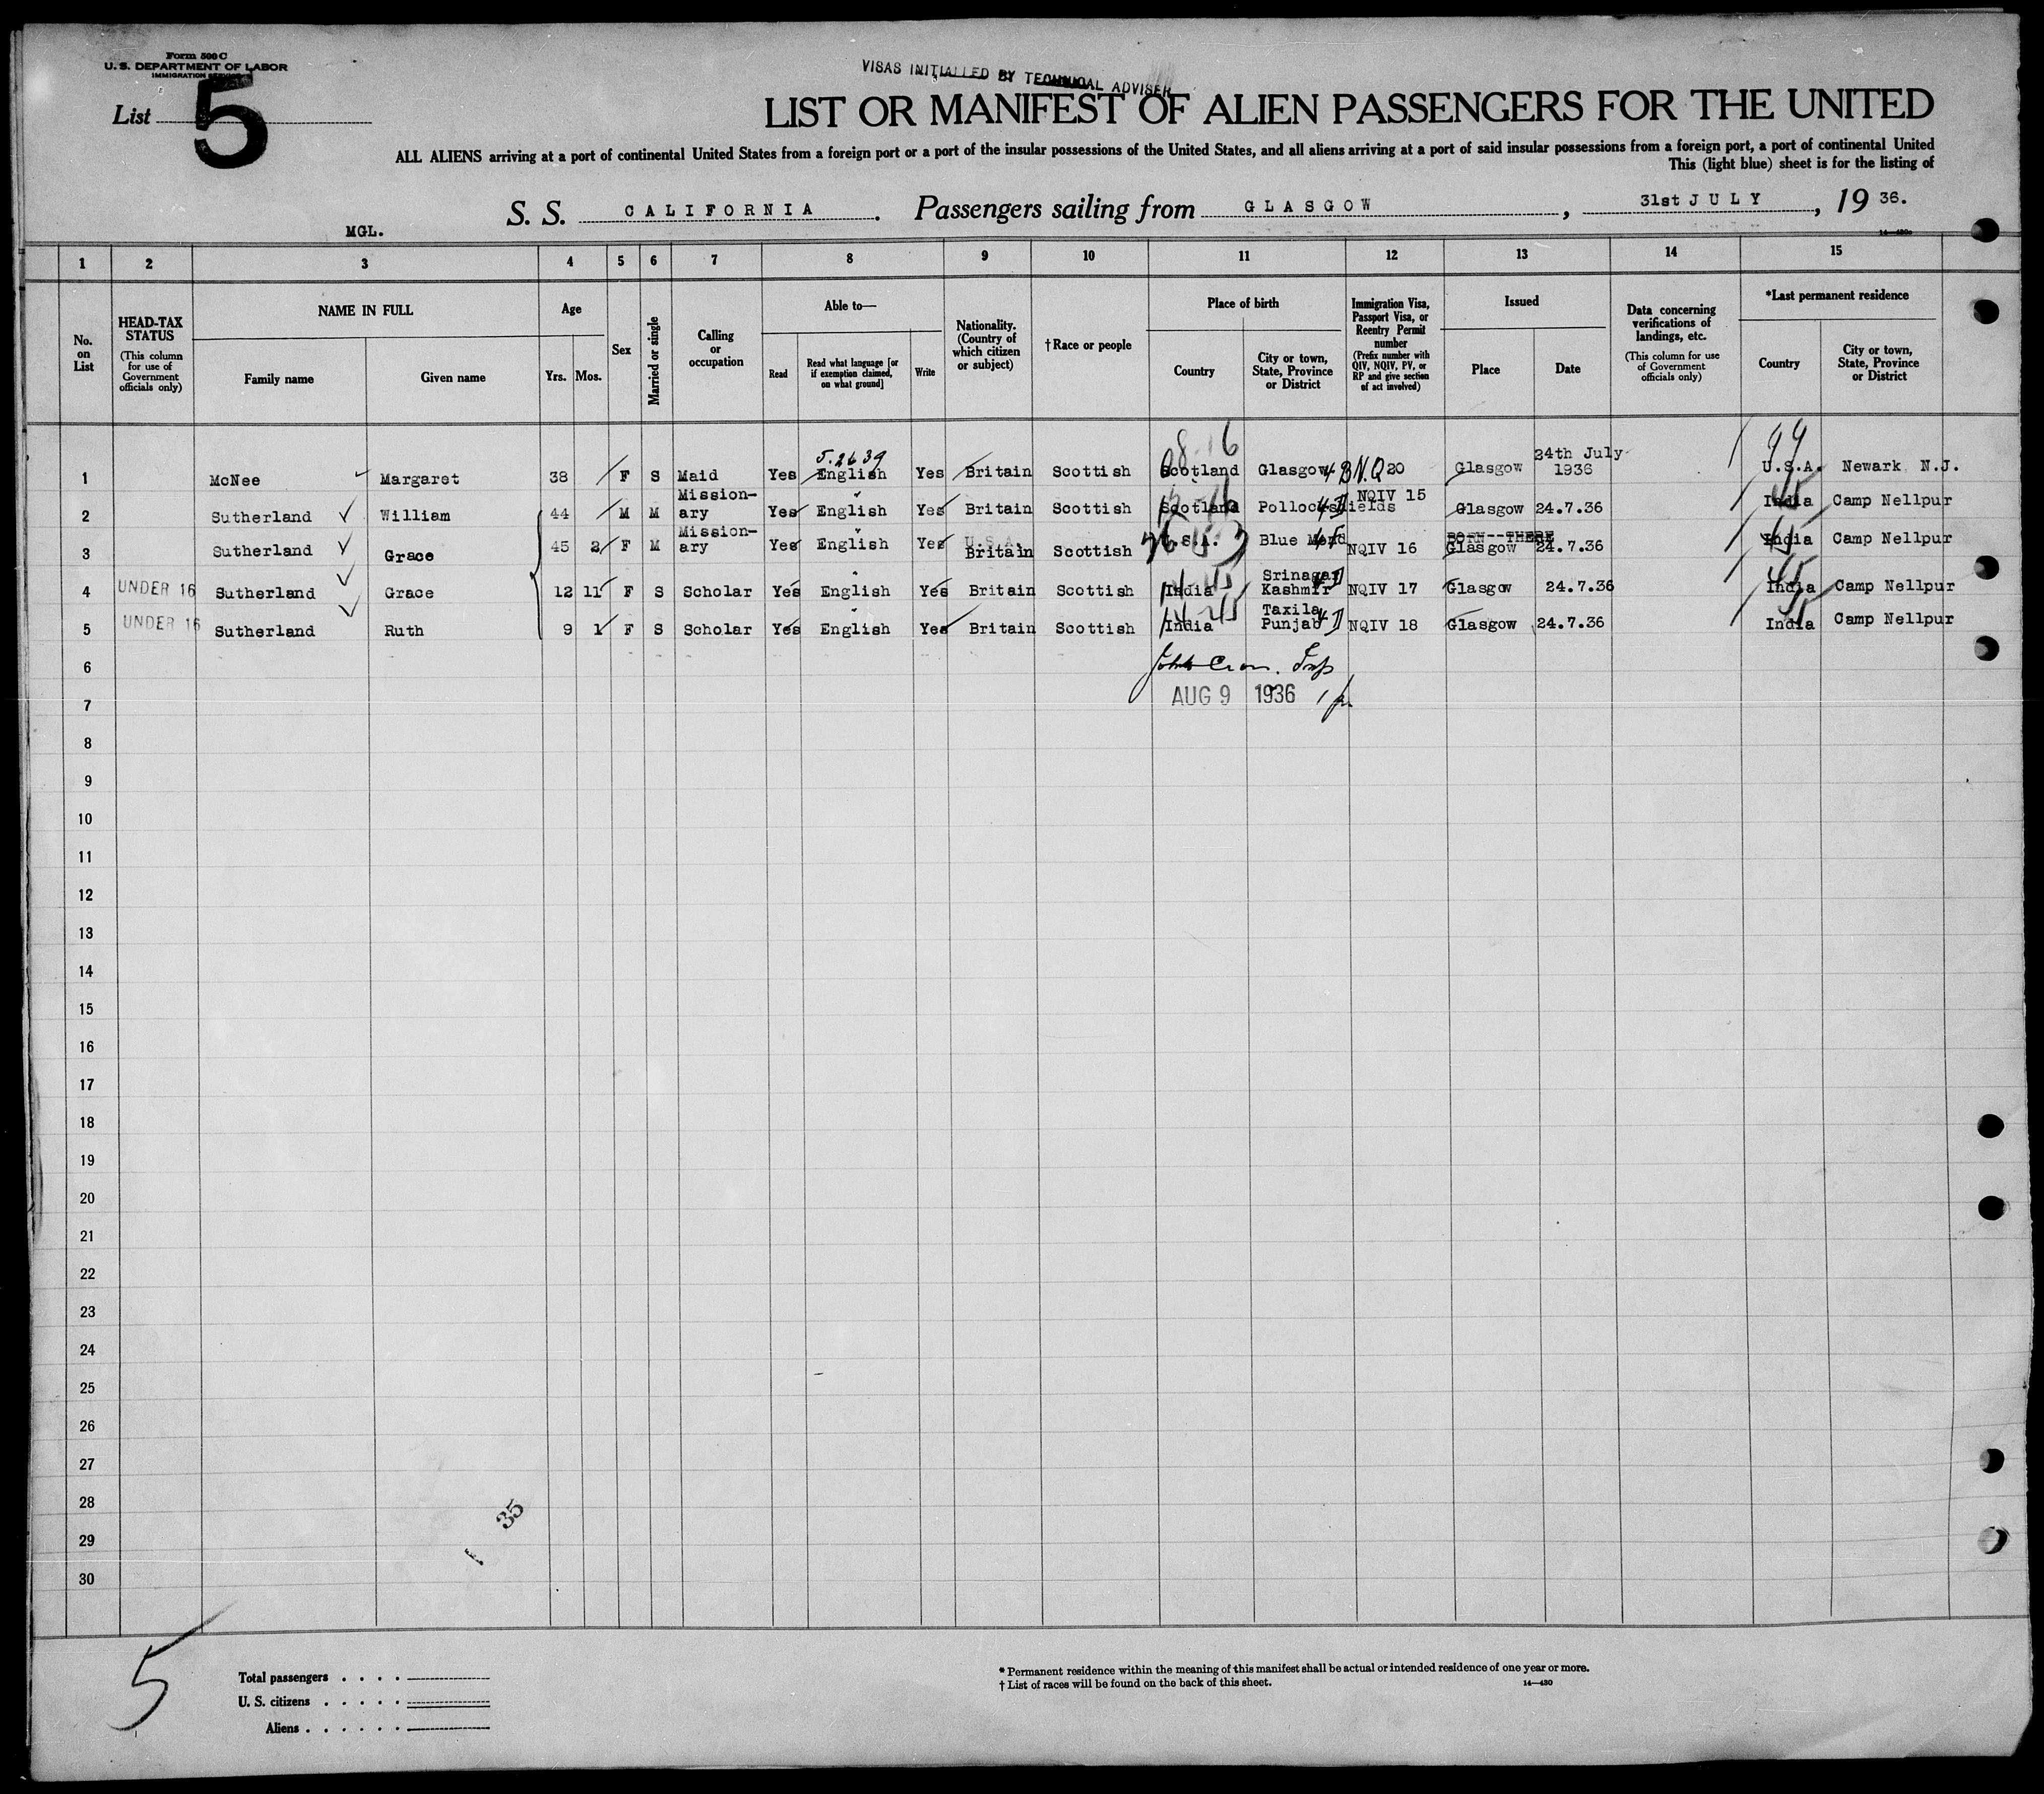 Form 500 C
U. S. DEPARTMENT OF LABOR
IMMIGRATION SERVICE
VISAS INITIALLED BY TECHNICAL ADVISER
List 5
LIST OR MANIFEST OF ALIEN PASSENGERS FOR THE UNITED
ALL ALIENS arriving at a port of continental United States from a foreign port or a port of the insular possessions of the United States, and all aliens arriving at a port of said insular possessions from a foreign port, a port of continental United
This (light blue) sheet is for the listing of
S. S. CALIFORNIA. Passengers sailing from GLASGOW, 31st JULY, 19 36.
MGL.
14—430c
1 2 3 4 5 6 7 8 9 10 11 12 13 14 15
No. on List
HEAD-TAX STATUS (This column for use of Government officials only)
NAME IN FULL Family name Given name
Age Yrs. Mos.
Sex
Married or single
Calling or occupation
Able to— Read Read what language [or if exemption claimed, on what ground] Write
Nationality. (Country of which citizen or subject)
†Race or people
Place of birth Country City or town, State, Province or District
Immigration Visa, Passport Visa, or Reentry Permit number (Prefix number with QIV, NQIV, PV, or RP and give section of act involved)
Issued Place Date
Data concerning verifications of landings, etc. (This column for use of Government officials only)
*Last permanent residence Country City or town, State, Province or District
1 McNee Margaret 38 F S Maid Yes English Yes Britain Scottish Scotland Glasgow N.Q 20 Glasgow 24th July 1936 99 U.S.A. Newark N.J.
2 Sutherland William 44 M M Mission-ary Yes English Yes Britain Scottish Scotland Pollockshields NQIV 15 Glasgow 24.7.36 India Camp Nellpur
3 Sutherland Grace 45 2 F M Mission-ary Yes English Yes U.S.A. Britain Scottish U.S.A. Blue Mond NQIV 16 BORN--THERE Glasgow 24.7.36 India Camp Nellpur
4 UNDER 16 Sutherland Grace 12 11 F S Scholar Yes English Yes Britain Scottish India Srinagar Kashmir NQIV 17 Glasgow 24.7.36 India Camp Nellpur
5 UNDER 16 Sutherland Ruth 9 1 F S Scholar Yes English Yes Britain Scottish India Taxila Punjab NQIV 18 Glasgow 24.7.36 India Camp Nellpur
6
7 AUG 9 1936
8
9
10
11
12
13
14
15
16
17
18
19
20
21
22
23
24
25
26
27
28
29
30
35
5
Total passengers
U. S. citizens
Aliens
* Permanent residence within the meaning of this manifest shall be actual or intended residence of one year or more.
† List of races will be found on the back of this sheet.
14—430